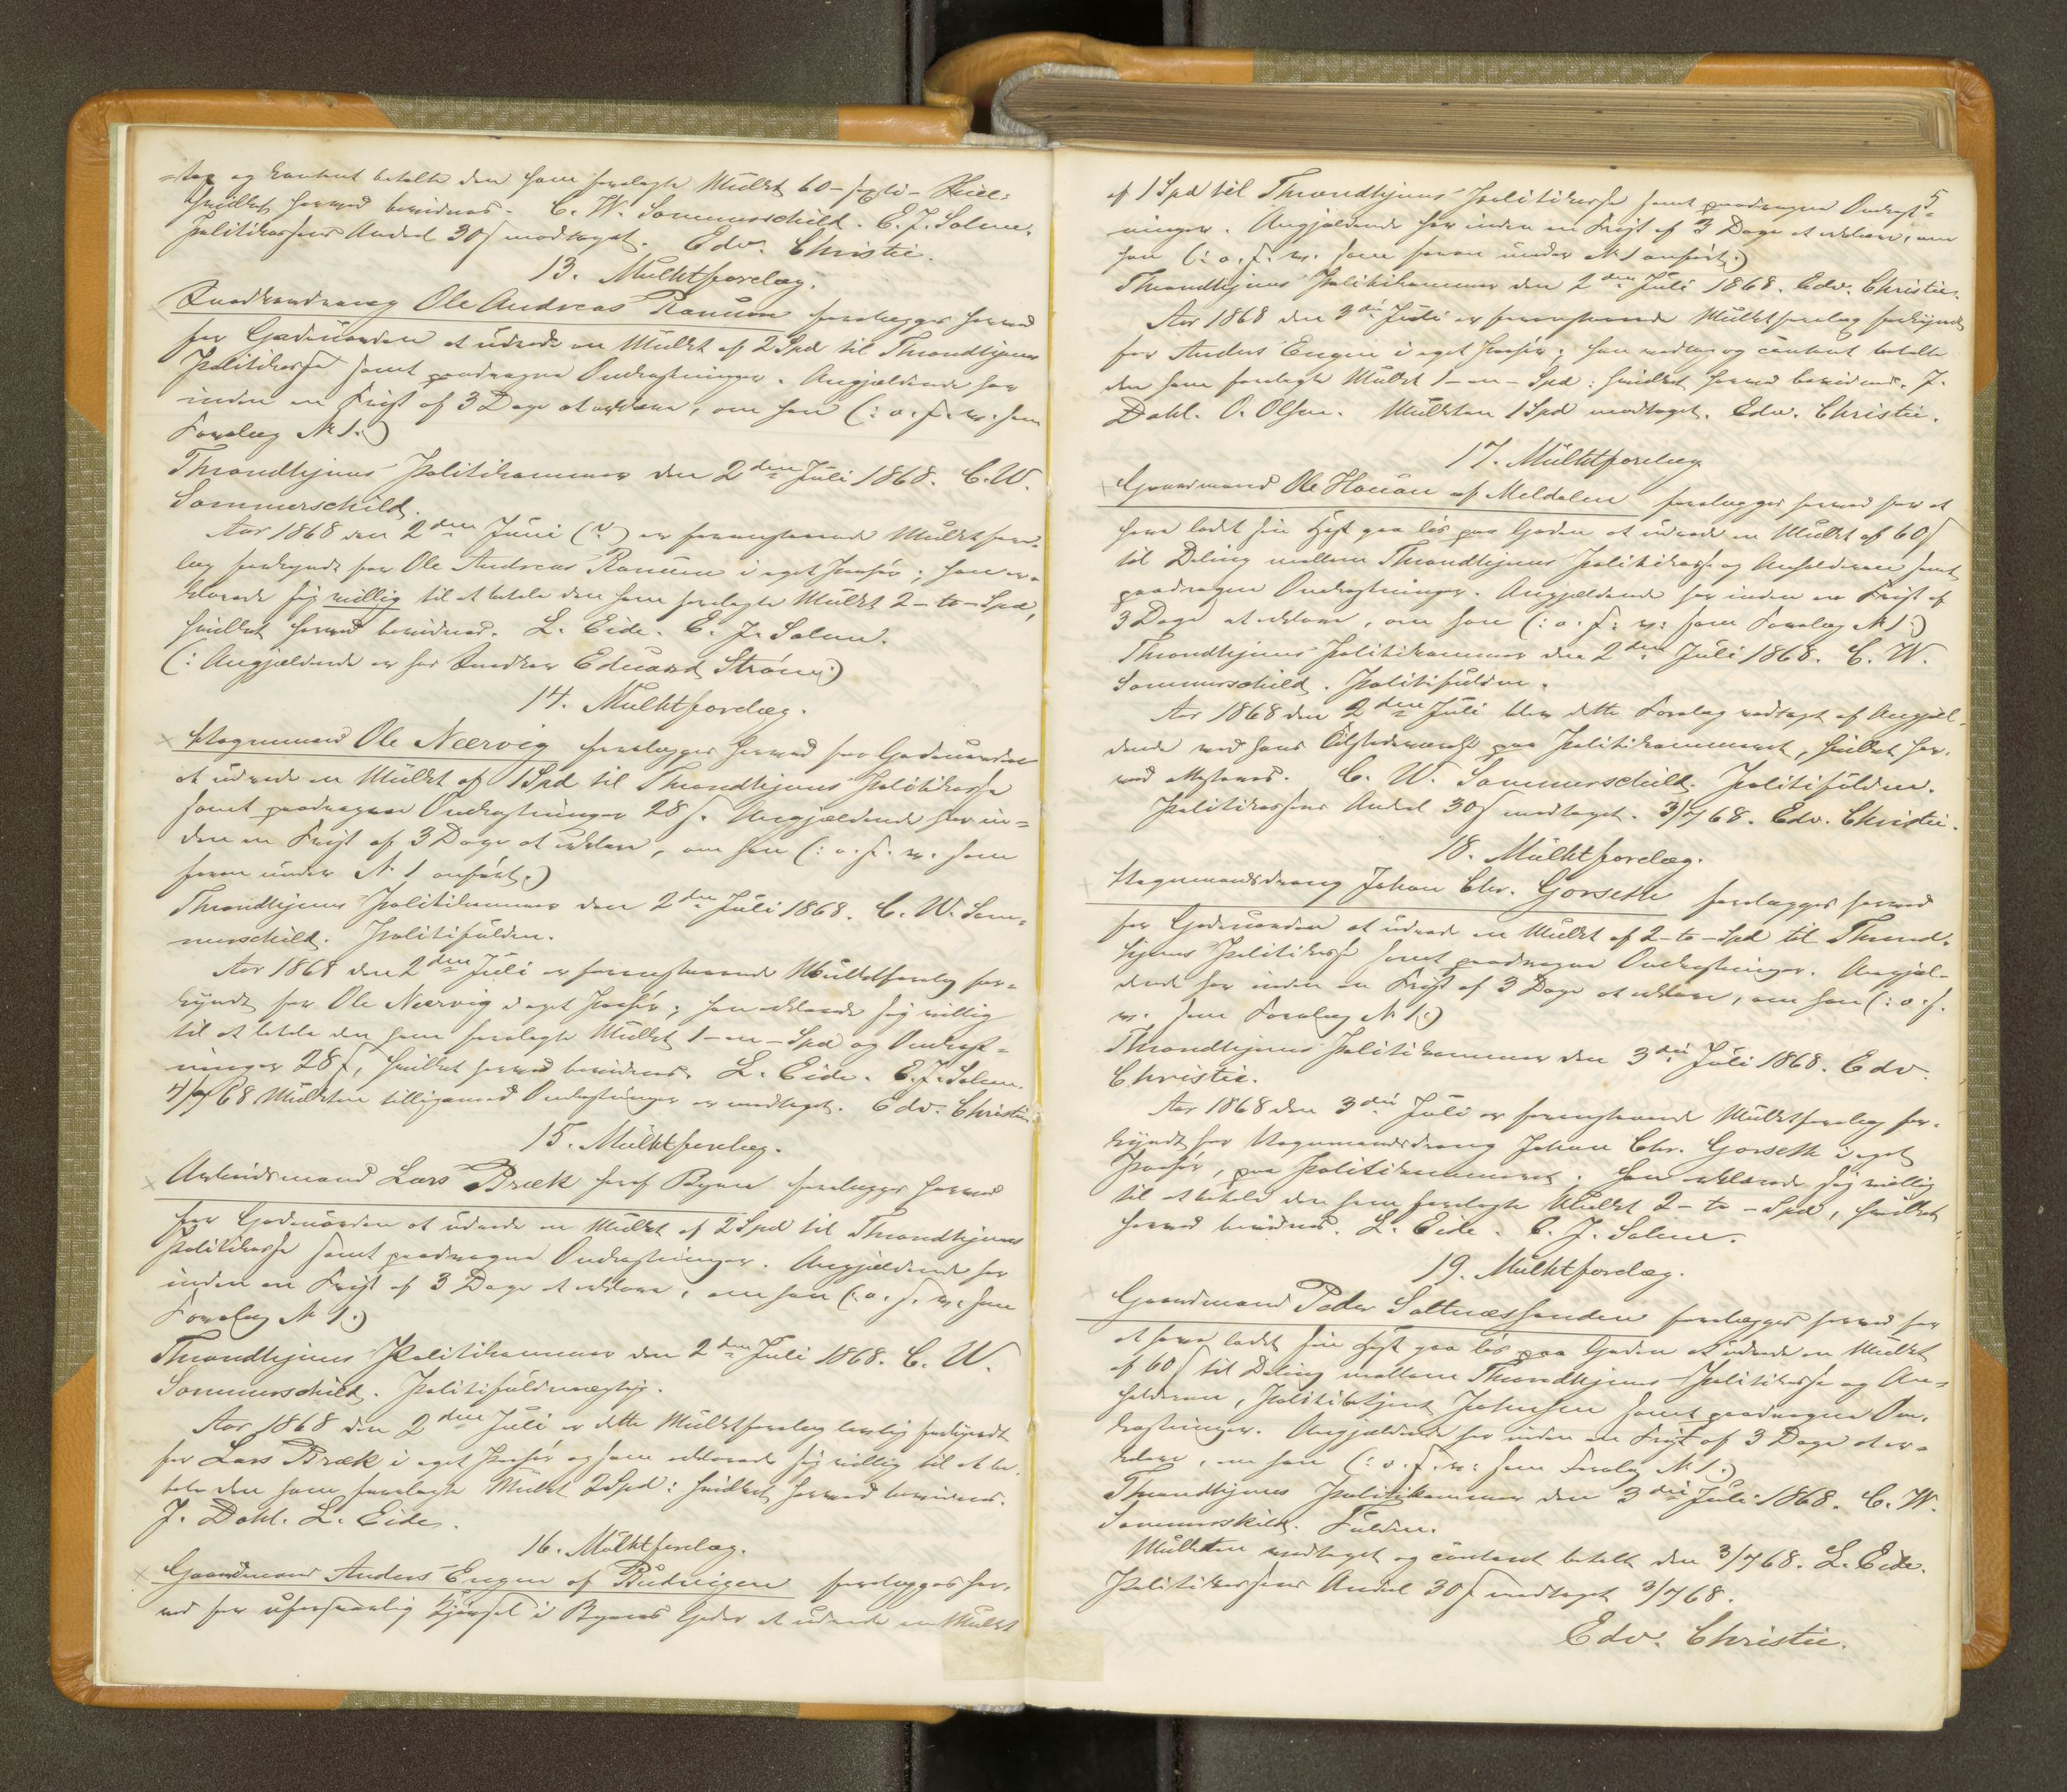 -tog og contant betalte den ham forelagte Mulkt 60 - sexti - Skill:
hvilket herved bevidnes. C. W. Sommerschild. E. J. Solem.
Politikassens Andel 30 s modtaget. Edv. Christie.
13. Mulktforelæg.
Snedkerdreng Ole Andreas Ranum forelægges herved
for Gadeuorden at udrede en Mulkt af 2 Spd til Throndhjems
Politikasse samt paadragne Omkostninger. Angjældende har
inden en Frist af 3 Dage at erklære, om han (: o. s. v. som
Forelæg N 1.)
Throndhjems Politikammer den 2den Juli 1868. C. W.
Sommerschild.
Aar 1868 den 2den Juni (?) er foranstaaende Mulktfore-
læg forkyndt for Ole Andreas Ranum i eget Paahør; han er-
klærede sig villig til at betale den ham forelagte Mulkt 2 - to - Spd,
hvilket herved bevidnes. L. Eide. E. J. Solem.
(: Angjældende er hos Snedker Eduard Strøm:)
14. Mulktforelæg.
Vognmand Ole Neervig forelægges herved for Gadeuorden
at udrede en Mulkt af 1 Spd til Throndhjems Politikasse
samt paadragne Omkostninger 28 s. Angjældende har in-
den en Frist af 3 Dage at erklære, om han (: o. s. v. som
foran under N. 1 anført.)
Throndhjems Politikammer den 2den Juli 1868. C. W. Som-
merschild. Politifuldm.
Aar 1868 den 2den Juli er foranstaaende Mulktforelæg for-
kyndt for Ole Neervig i eget Paahør; han erklærede sig villig
til at betale den ham forelagte Mulkt 1 - en - Spd og Omkost-
ninger 28 s, hvilket herved bevidnes. L. Eide. E. J. Solem.
4/7 68 Mulkten tilligemed Omkostninger er modtaget. Edv. Christie.
15. Mulktforelæg.
Arbeidsmand Lars Bræk her af Byen forelægges herved
for Gadeuorden at udrede en Mulkt af 2 Spd til Throndhjems
Politikasse samt paadragne Omkostninger. Angjældende har
inden en Frist af 3 Dage at erklære, om han (: o. s. v. som
Forelæg N 1.)
Throndhjems Politikammer den 2den Juli 1868. C. W.
Sommerschild. Politifuldmægtig.
Aar 1868 den 2den Juli er dette Mulktforelæg lovlig forkyndt
for Lars Bræk i eget Paahør og han erklærede sig villig til at be-
tale den ham forelagte Mulkt 2 Spd: hvilket herved bevidnes.
J. Dahl. L. Eide.
16. Mulktforelæg.
Gaardmand Anders Engen af Budvigen forelægges her-
ved for uforsvarlig Kjørsel i Byens Gader at udrede en Mulkt
5
af 1 Spd til Throndhjems Politikasse samt paadragne Omkost-
ninger. Angjældende har inden en Frist af 3 Dage at erklære, om
han (: o. s. v. som foran under N 1 anført.)
Throndhjems Politikammer den 2den Juli 1868. Edv. Christie.
Aar 1868 den 3die Juli er foranstaaende Mulktforelæg forkyndt
for Anders Engen i eget Paahør; han vedtog og contant betalte
den ham forelagte Mulkt 1 - en - Spd: hvilket herved bevidnes. J.
Dahl. O. Olsen. Mulkten 1 Spd modtaget. Edv. Christie.
17. Mulktforelæg
Gaardmand Ole Houan af Meldalen forelægges herved for at
have ladet sin Hest gaa løs paa Gaden at udrede en Mulkt af 60 s
til Deling mellem Throndhjems Politikasse og Anholderen samt
paadragne Omkostninger. Angjældende har inden en Frist af
3 Dage at erklære, om han (: o. s. v. som Forelæg N 1.)
Throndhjems Politikammer den 2den Juli 1868. C. W.
Sommerschild. Politifuldm.
Aar 1868 den 2den Juli blev dette Forelæg vedtaget af Angjæl-
dende ved hans Tilstedeværelse paa Politikammeret, hvilket her-
ved attesteres. C. W. Sommerschild. Politifuldm.
Politikassens Andel 30 s modtaget. 3/7 68. Edv. Christie.
18. Mulktforelæg.
Vognmandsdreng Johan Chr. Gorseth forelægges herved
for Gadeuorden at udrede en Mulkt af 2 - to - Spd til Thrond-
hjems Politikasse samt paadragne Omkostninger. Angjæl-
dende har inden en Frist af 3 Dage at erklære, om han (: o. s.
v. som Forelæg N 1.)
Throndhjems Politikammer den 3die Juli 1868. Edv.
Christie.
Aar 1868 den 3die Juli er foranstaaende Mulktforelæg for-
kyndt for Vognmandsdreng Johan Chr. Gorseth i eget
Paahør, paa Politikammeret; han erklærede sig villig
til at betale den ham forelagte Mulkt 2 - to - Spd, hvilket
herved bevidnes. L. Eide. E. J. Solem.
19. Mulktforelæg.
Gaardmand Peder Saltnæssanden forelægges herved for
at have ladet sin Hest gaa løs paa Gaden at udrede en Mulkt
af 60 s til Deling mellem Throndhjems Politikasse og An-
holderen, Politibetjent Johnsen samt paadragne Om-
kostninger. Angjældende har inden en Frist af 3 Dage at er-
klære, om han (: o. s. v. som Forelæg N 1.)
Throndhjems Politikammer den 3die Juli 1868. C. W.
Sommerskild. Fuldm.
Mulkten vedtaget og contant betalt den 3/7 68. L. Eide.
Politikassens Andel 30 s modtaget 3/7 68.
Edv. Christie.